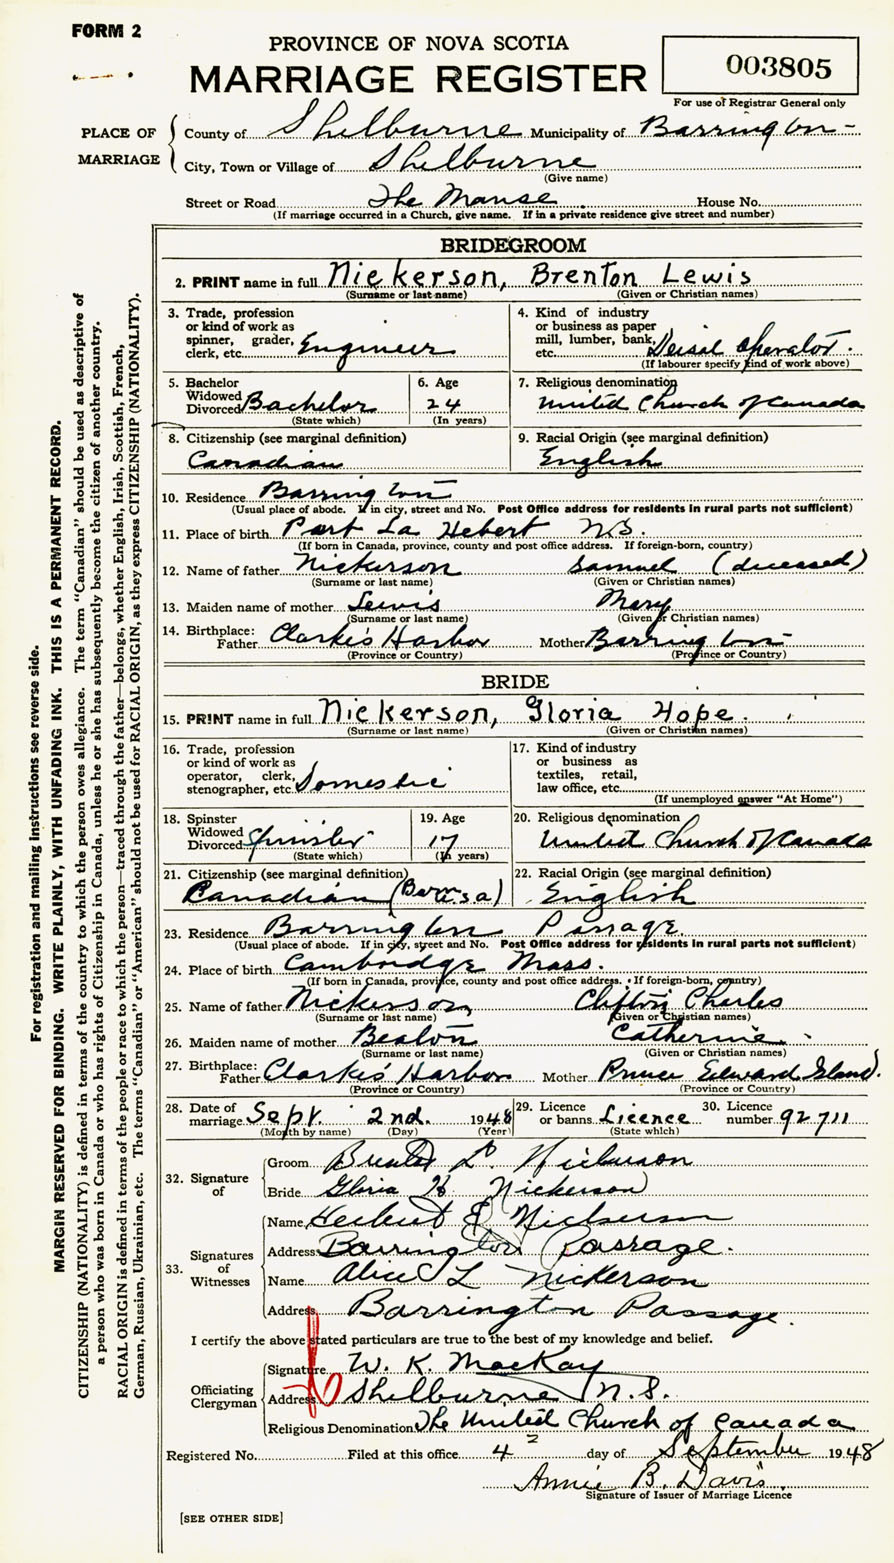 FORM 2
PROVINCE OF NOVA SCOTIA
MARRIAGE REGISTER
003805
For use of Registrar General only
PLACE OF MARRIAGE
County of Shelburne Municipality of Barrington
City, Town or Village of Shelburne
(Give name)
Street or Road The Manse House No.
(If marriage occurred in a Church, give name. If in a private residence give street and number)
BRIDEGROOM
2. PRINT name in full Nickerson, Brenton Lewis
(Surname or last name) (Given or Christian names)
3. Trade, profession or kind of work as spinner, grader, clerk, etc. Engineer
4. Kind of industry or business as paper mill, lumber, bank, etc. Deisal Operator.
(If labourer specify kind of work above)
5. Bachelor Widowed Divorced Bachelor
(State which)
6. Age 24
(In years)
7. Religious denomination
United Church of Canada
8. Citizenship (see marginal definition)
Canadian
9. Racial Origin (see marginal definition)
English
10. Residence Barrington
(Usual place of abode. If in city, street and No. Post Office address for residents in rural parts not sufficient)
11. Place of birth Port La Hebert N.S.
(If born in Canada, province, county and post office address. If foreign-born, country)
12. Name of father Nickerson Samuel (deceased)
(Surname or last name) (Given or Christian names)
13. Maiden name of mother Lewis Mary
(Surname or last name) (Given or Christian names)
14. Birthplace: Father Clarke's Harbor Mother Barrington
(Province or Country) (Province or Country)
BRIDE
15. PRINT name in full Nickerson, Gloria Hope.
(Surname or last name) (Given or Christian names)
16. Trade, profession or kind of work as operator, clerk, stenographer, etc. Domestic
17. Kind of industry or business as textiles, retail, law office, etc.
(If unemployed answer "At Home")
18. Spinster Widowed Divorced Spinster
(State which)
19. Age 17
(In years)
20. Religious denomination
United Church of Canada
21. Citizenship (see marginal definition)
Canadian (Born U.S.A)
22. Racial Origin (see marginal definition)
English
23. Residence Barrington Passage.
(Usual place of abode. If in city, street and No. Post Office address for residents in rural parts not sufficient)
24. Place of birth Cambridge Mass.
(If born in Canada, province, county and post office address. If foreign-born, country)
25. Name of father Nickerson, Clifton Charles
(Surname or last name) (Given or Christian names)
26. Maiden name of mother Beaton Catherine.
(Surname or last name) (Given or Christian names)
27. Birthplace: Father Clarke's Harbor Mother Prince Edward Island.
(Province or Country) (Province or Country)
28. Date of marriage Sept. 2nd. 1948
(Month by name) (Day) (Year)
29. Licence or banns Licence
(State which)
30. Licence number 92711
32. Signature of
Groom Brenton L. Nickerson
Bride Gloria H Nickerson
33. Signatures of Witnesses
Name Herbert Nickerson
Address Barrington Passage.
Name Alice L Nickerson
Address Barrington Passage.
I certify the above stated particulars are true to the best of my knowledge and belief.
Officiating Clergyman
Signature W. K. MacKay
Address Shelburne N.S.
Religious Denomination The United Church of Canada
Registered No. Filed at this office 4 day of September 1948
Annie B. Davis
Signature of Issuer of Marriage Licence
[SEE OTHER SIDE]
For registration and mailing instructions see reverse side.
MARGIN RESERVED FOR BINDING. WRITE PLAINLY, WITH UNFADING INK. THIS IS A PERMANENT RECORD.
CITIZENSHIP (NATIONALITY) is defined in terms of the country to which the person owes allegiance. The term "Canadian" should be used as descriptive of
a person who was born in Canada or who has rights of Citizenship in Canada, unless he or she has subsequently become the citizen of another country.
RACIAL ORIGIN is defined in terms of the people or race to which the person—traced through the father—belongs, whether English, Irish, Scottish, French,
German, Russian, Ukrainian, etc. The terms "Canadian" or "American" should not be used for RACIAL ORIGIN, as they express CITIZENSHIP (NATIONALITY).